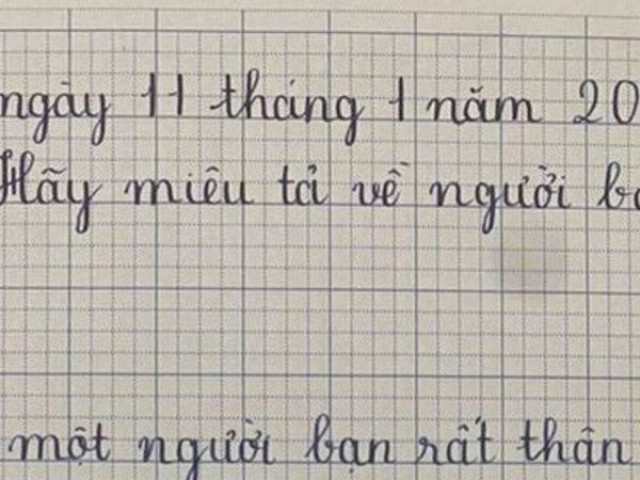 ngày 11 tháng 1 năm 20
Hãy miêu tả về người bạ
một người bạn rất thân